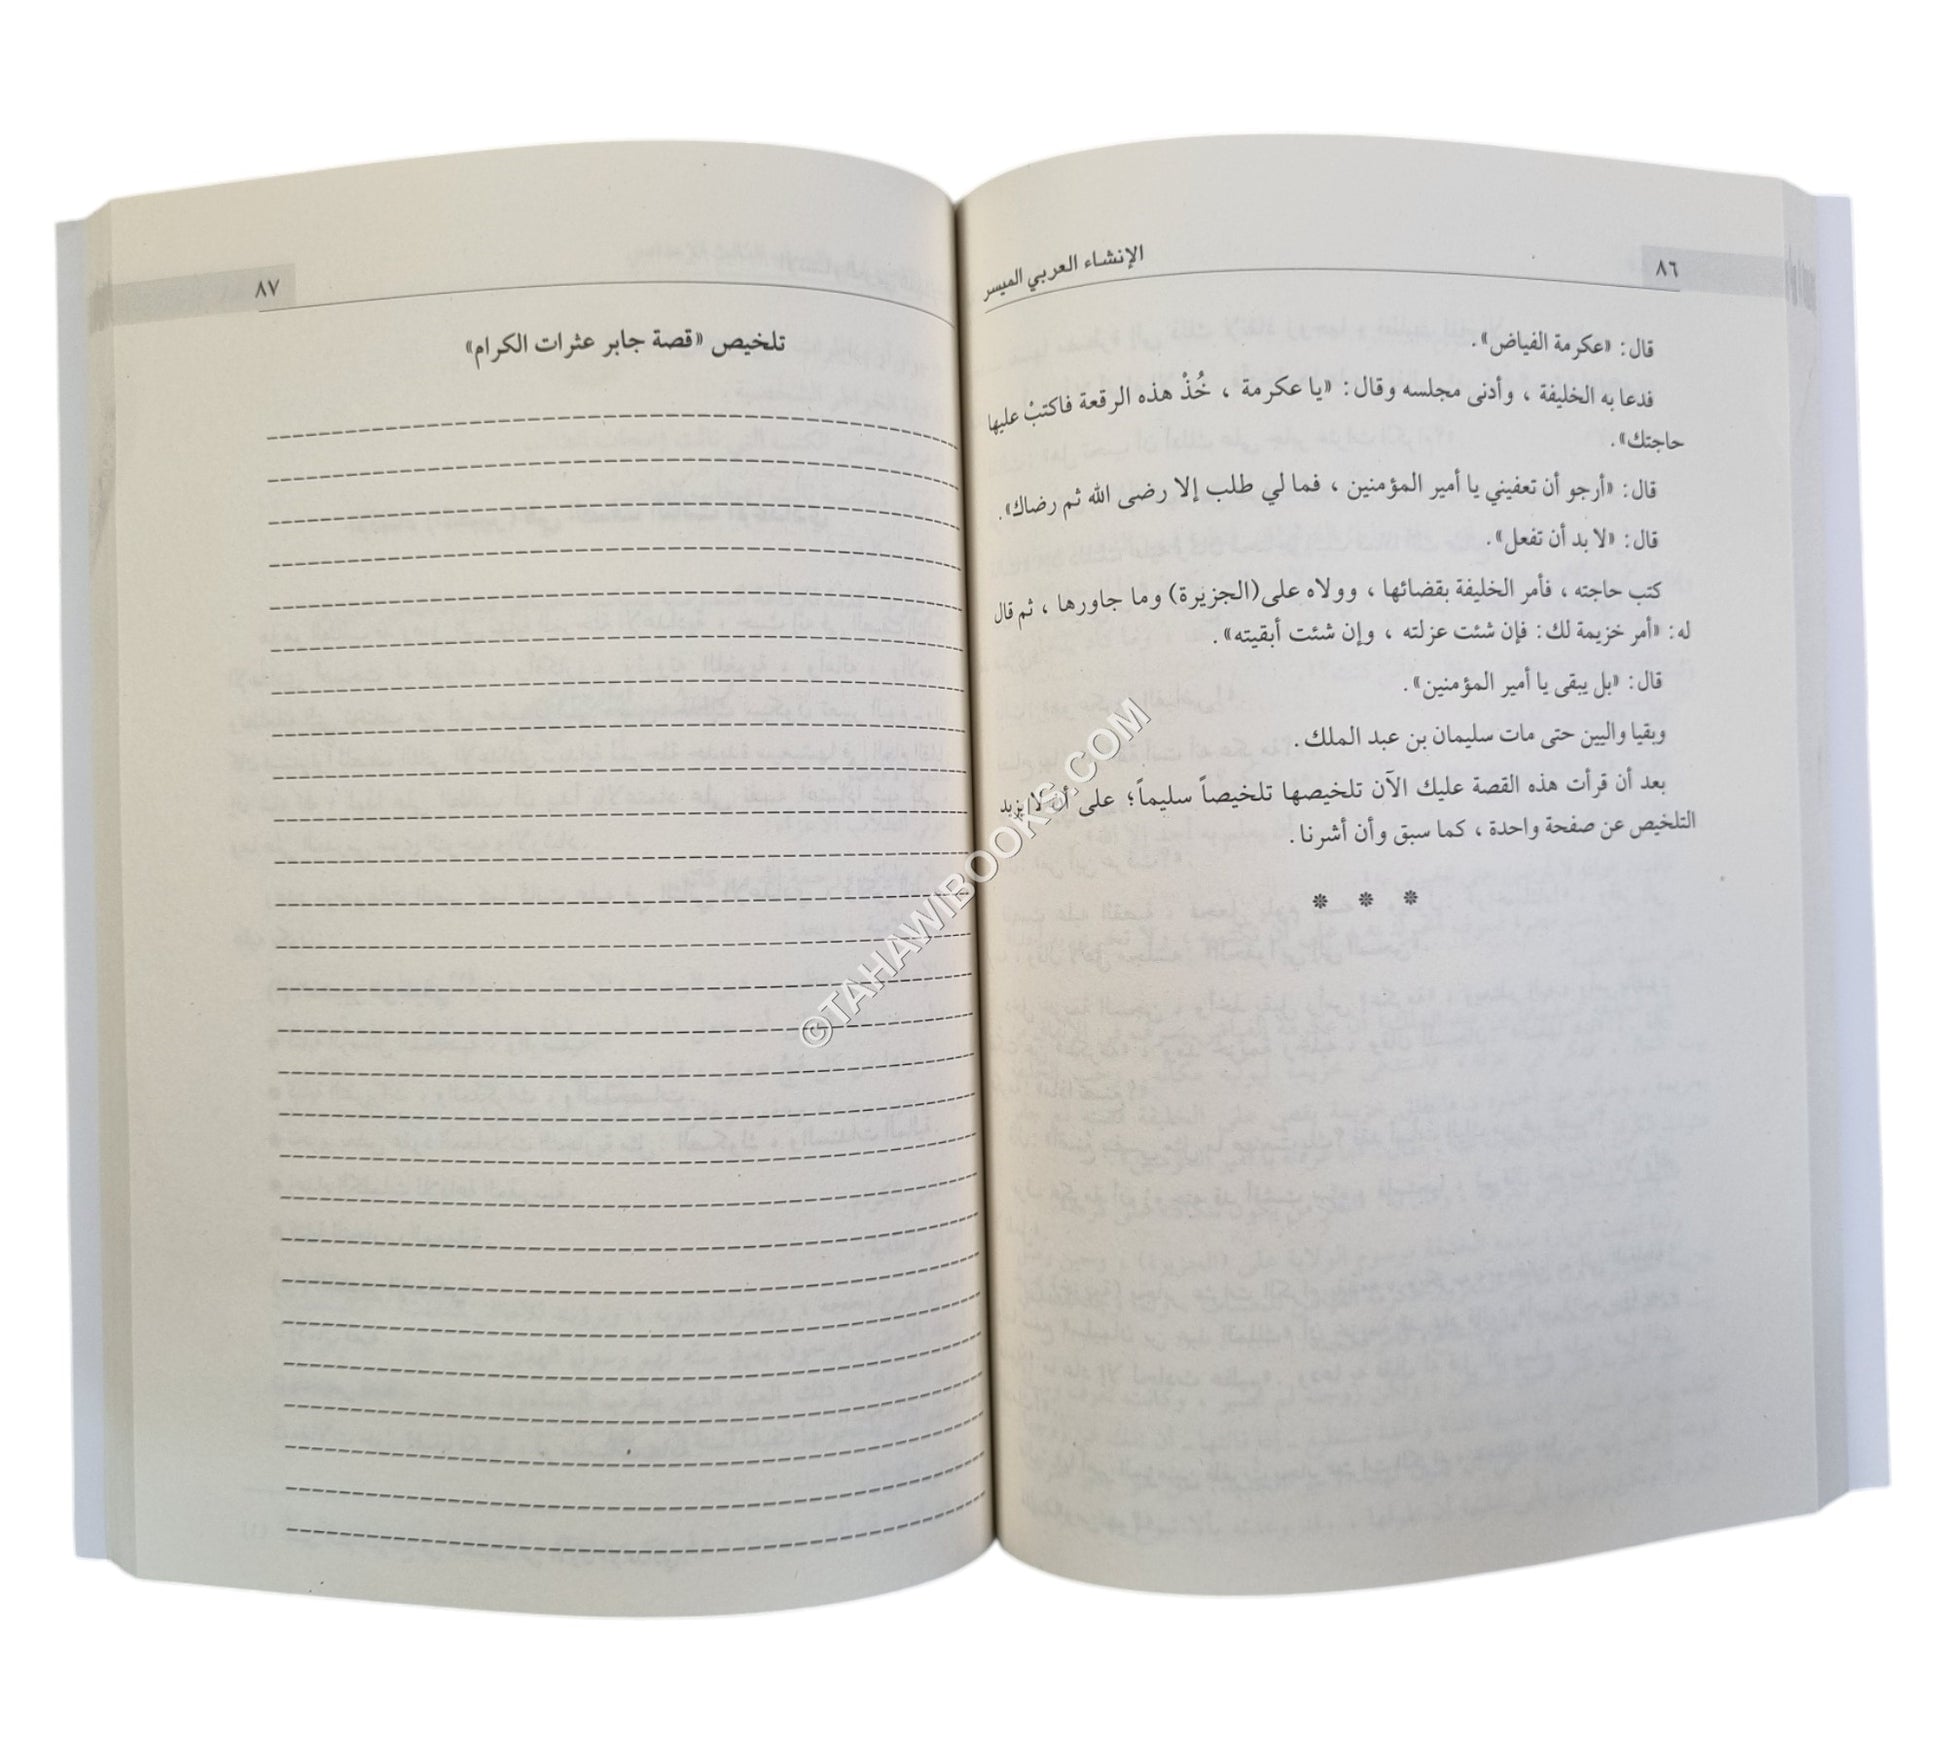 ٨٦
الإنشاء العربي الميسر
قال: «عكرمة الفياض».
فدعا به الخليفة ، وأدنى مجلسه وقال: «يا عكرمة ، خُذْ هذه الرقعة فاكتبْ عليها
حاجتك».
قال: «أرجو أن تعفيني يا أمير المؤمنين ، فما لي طلب إلا رضى الله ثم رضاك».
قال: «لا بد أن تفعل».
كتب حاجته ، فأمر الخليفة بقضائها ، وولاه على(الجزيرة) وما جاورها ، ثم قال
له: «أمر خزيمة لك: فإن شئت عزلته ، وإن شئت أبقيته».
قال: «بل يبقى يا أمير المؤمنين».
وبقيا واليين حتى مات سليمان بن عبد الملك.
بعد أن قرأت هذه القصة عليك الآن تلخيصها تلخيصاً سليماً؛ على أن لا يزيد
التلخيص عن صفحة واحدة ، كما سبق وأن أشرنا.
* * *
٨٧
تلخيص «قصة جابر عثرات الكرام»
©TAHAWIBOOKS.COM